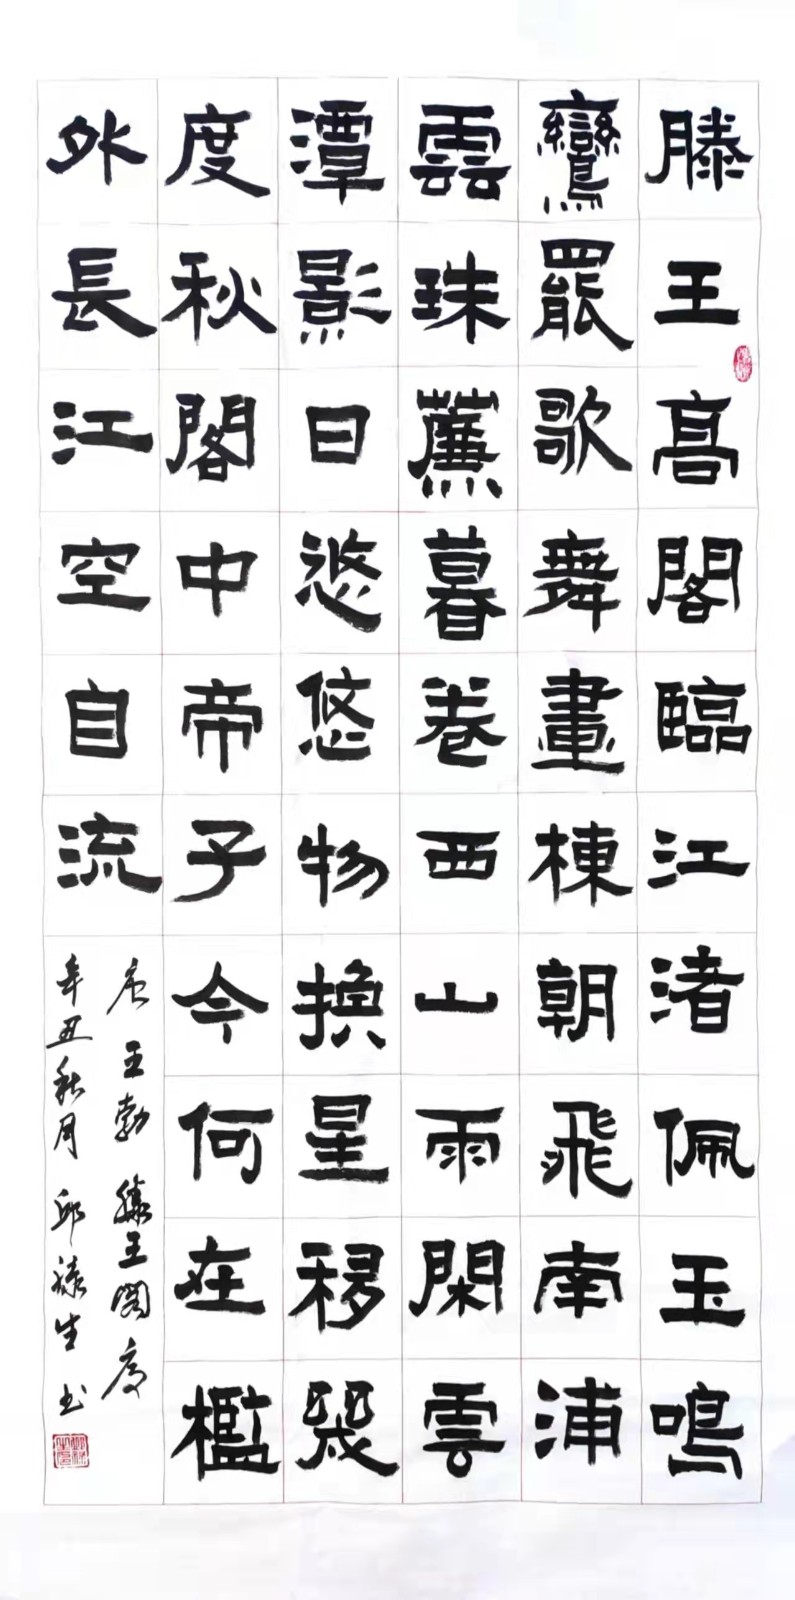 滕王高閣臨江渚佩玉鳴
鸞罷歌舞畫棟朝飛南浦
雲珠簾暮卷西山雨閑雲
潭影日悠悠物換星移幾
度秋閣中帝子今何在檻
外長江空自流
唐王勃滕王閣序
辛丑秋月邱禄生书